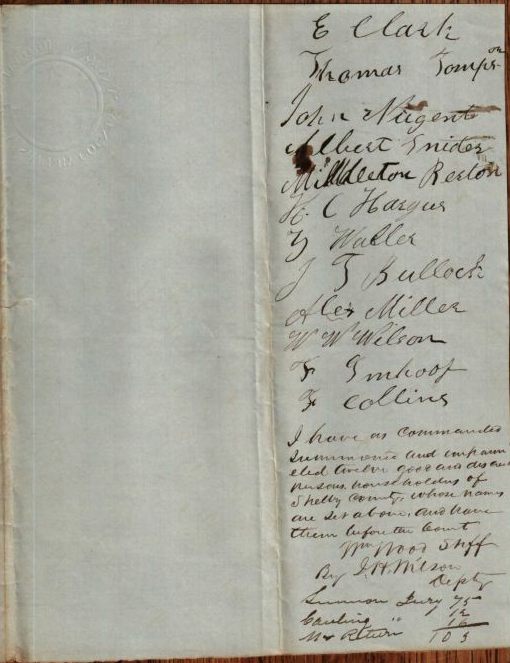 E Clark
Thomas Tompson
John Nugent
Albert Snider
Middleton Reston
H. C Hargus
Y Waller
J T Bullock
Alex Miller
W W Wilson
F Imhoof
F Collins
I have as commanded
summoned and impann
eled twelve good and discreet
persons, householders of
Shelby County, whose names
are set above, and have
them before the Court
Wm Wood Shff
By J. H. Wilson
Depty
Summon Jury 75
Calling " 12
Mr Return 16
103